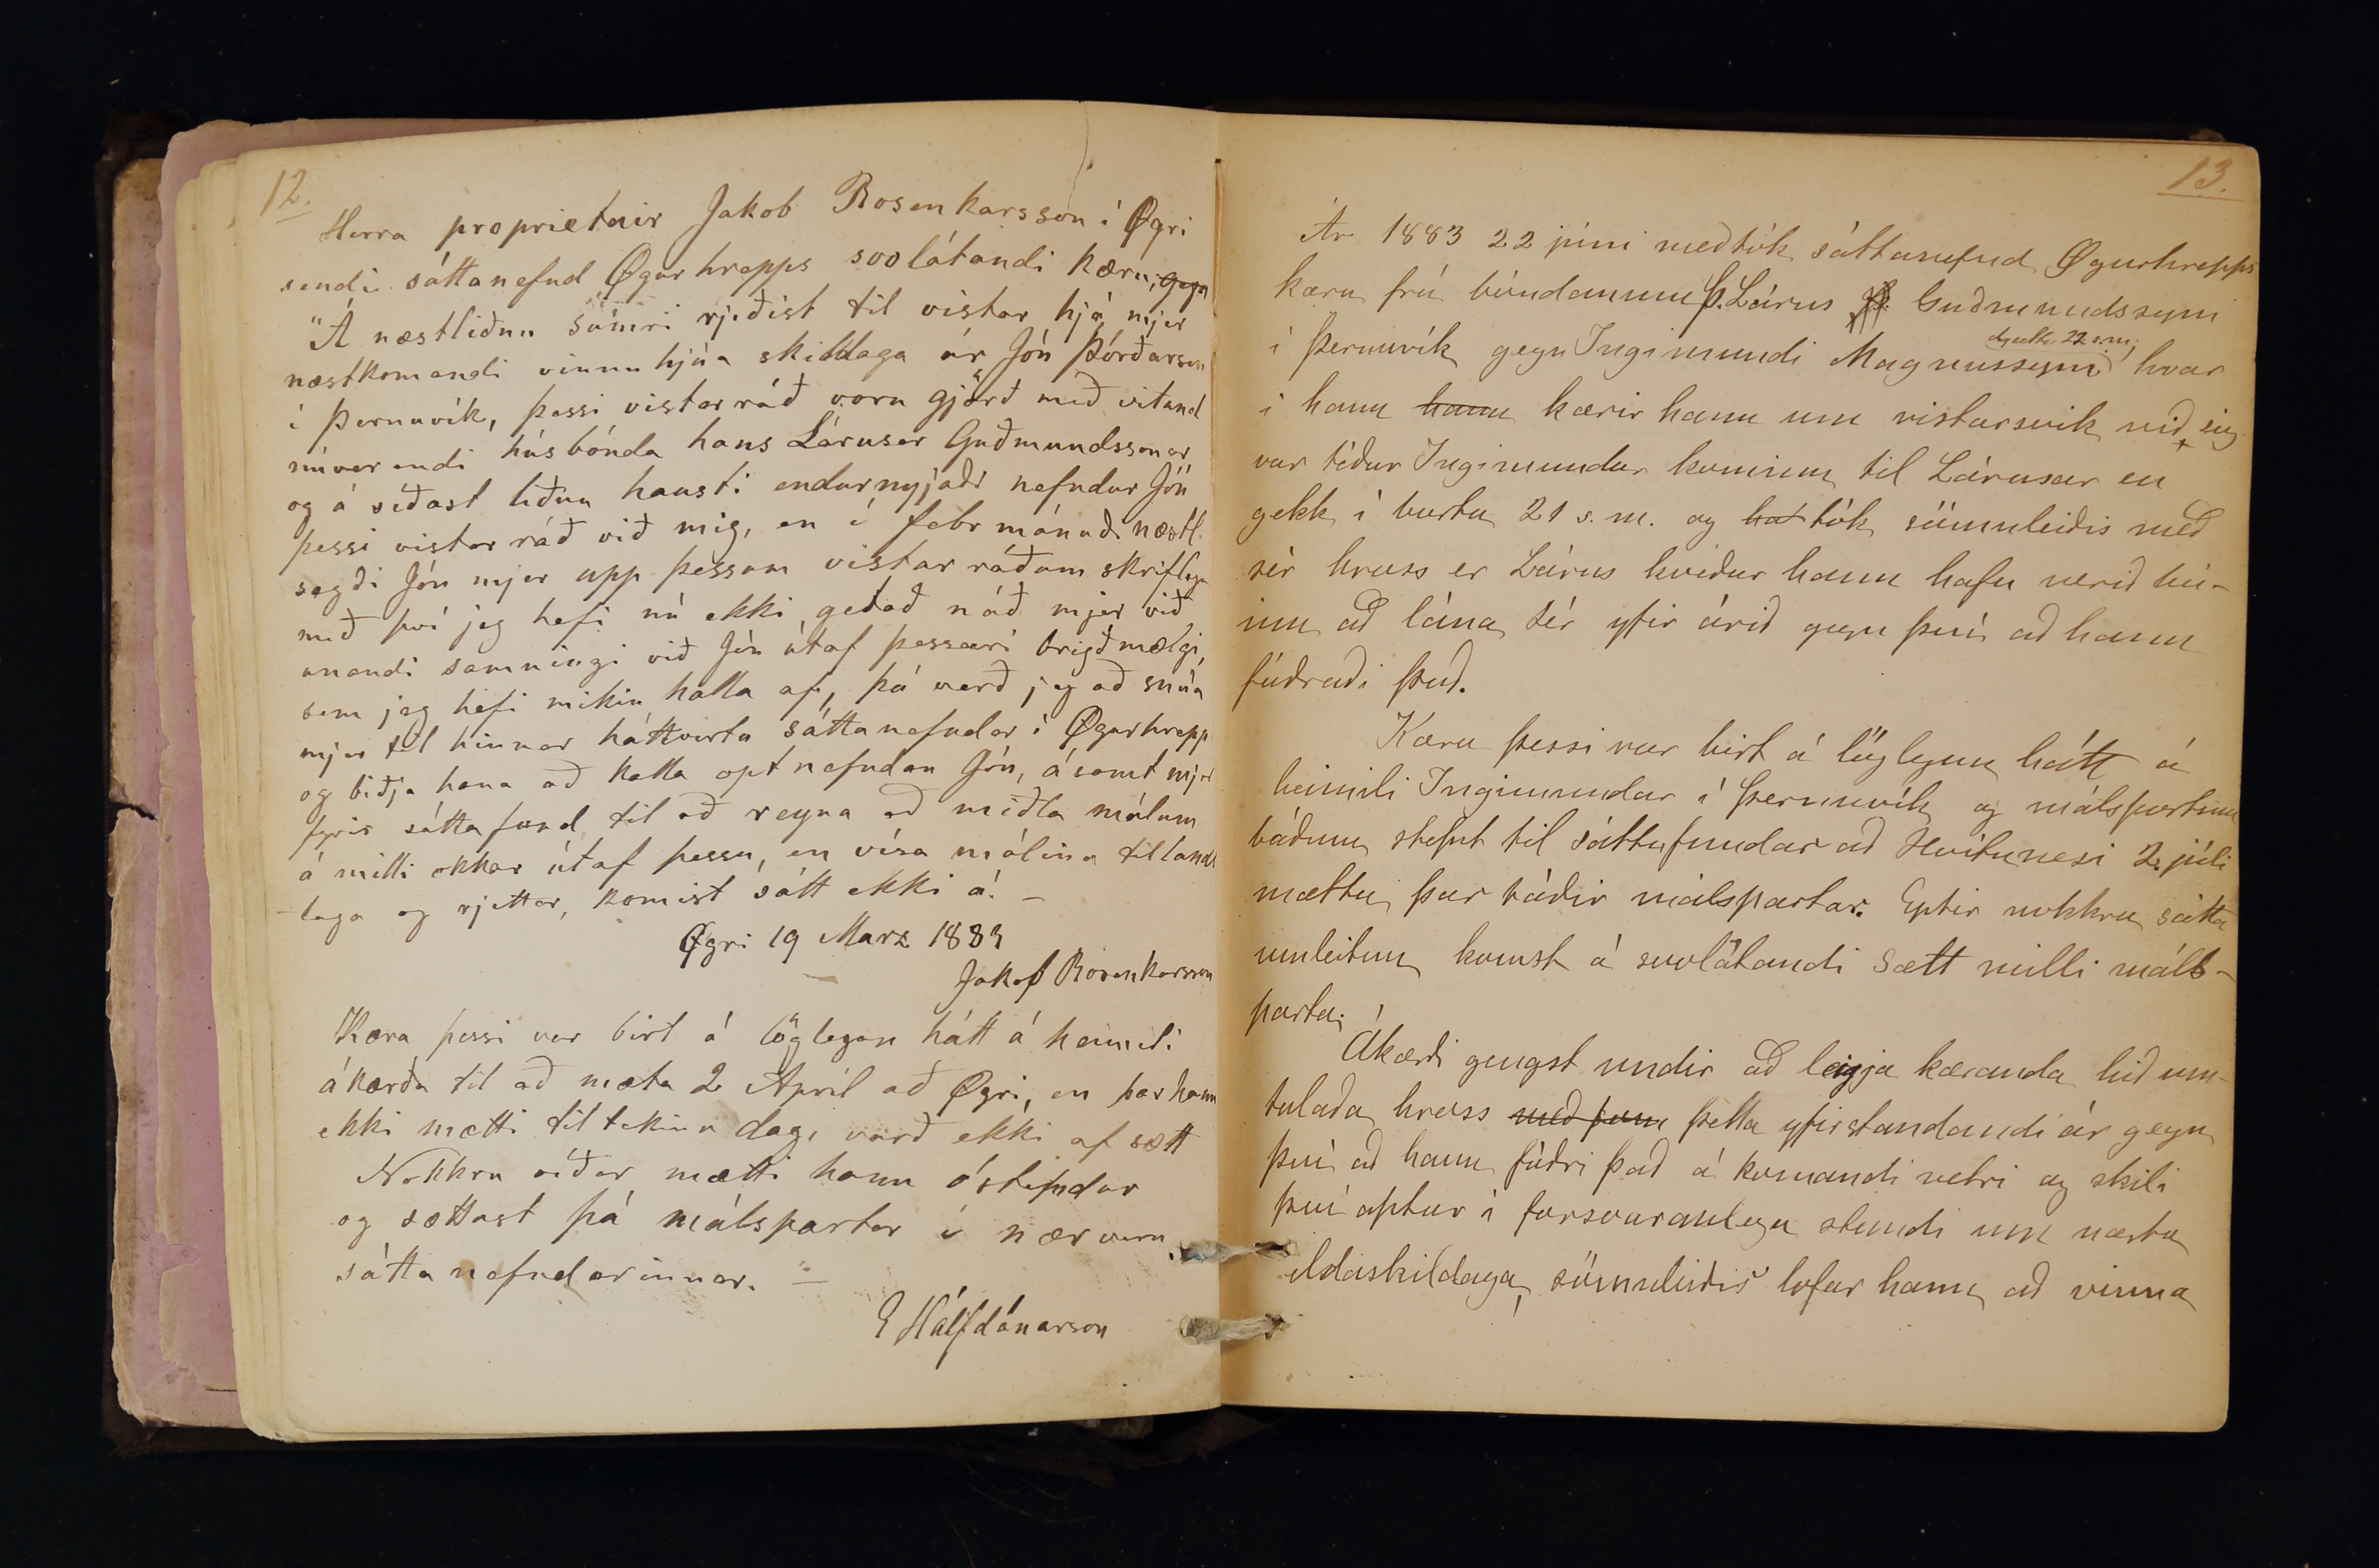 12.
Herra proprietair Jakob Rosenkarsson í Øgri
sendi sáttanefnd Øgurhrepps svolátandi kæru, gegn
"Á næstliðnu súmri rjeðist til vistar hjá mjer
næstkomandi vinnuhjúa skildaga ár Jón Þórðarson
í Þernuvík, þessi vistarráð voru gjörð með vitund
núverandi húsbónda hans Lárusar Guðmundssonar
og á síðast liðnu hausti endurnyjaði nefndur Jón
þessi vistarráð við mig, en í febr mánuði næstl.
sagði Jón mjer upp þessum vistarráðum skriflega
með því jeg hefi nú ekki getað náð mjer við
unandi samningi við Jón útaf þessari brigðmælgi,
sem jeg hefi mikin halla af, þá verð jeg að snúa
mjer til hinnar háttvirtu sáttanefndar í Øgurhrepp
og biðja hana að kalla optnefndan Jón, ásamt mjer
fyrir sáttafund til að reyna að miðla málum
á milli okkar útaf þessu, en vísa málinu til lands
laga og rjettar, komist sátt ekki á. –
Øgri 19 Marz 1883
Jakob Rosenkarsson
Kæra þessi var birt á löglegan hátt á heimili
ákærða til að mæta 2 Apríl að Øgri, en þar hann
ekki mætti tiltekinn dag, varð ekki af sætt
Nokkru síðar mætti hann óstefndur
og sættast þá málspartar í nærveru
sáttanefndarinnar. –
E Hálfdánarson
13.
Ár 1883 22 júni meðtók sáttanefnd Øgurhrepps
kæru frá bóndanum Þ. Lárus Guðmundssyni
í Þernuvík gegn Ingimundi Magnussyni hvar
í hann hann kærir hann um vistarsvik við sig
var téður Ingimundur kominn til Lárusar en
gekk í burtu 21 s. m. og hat tók sömuleiðis með
sér hross er Lárus kveður hann hafa verið bú-
inn að lána sér yfir árið gegn því að hann
fóðraði það.
Kæra þessi var birt á löglegan hátt á
heimili Ingimundar í Þernuvík og málspörtum
báðum stefnt til sáttafundar að Hvítanesi 2. júli
mættu þar báðir málspartar. Eptir nokkra sátta
umleitun komst á svolátandi sætt milli máls-
parta;
Ákærði gengst undir að leigja kæranda hið um-
talaða hross með þum þetta yfirstandandi ár gegn
því að hann fóðri það á komandi vetri og skili
því aptur í forsvaranlegu standi um næstu
eldaskildaga, sömuleiðis lofar hann að vinna